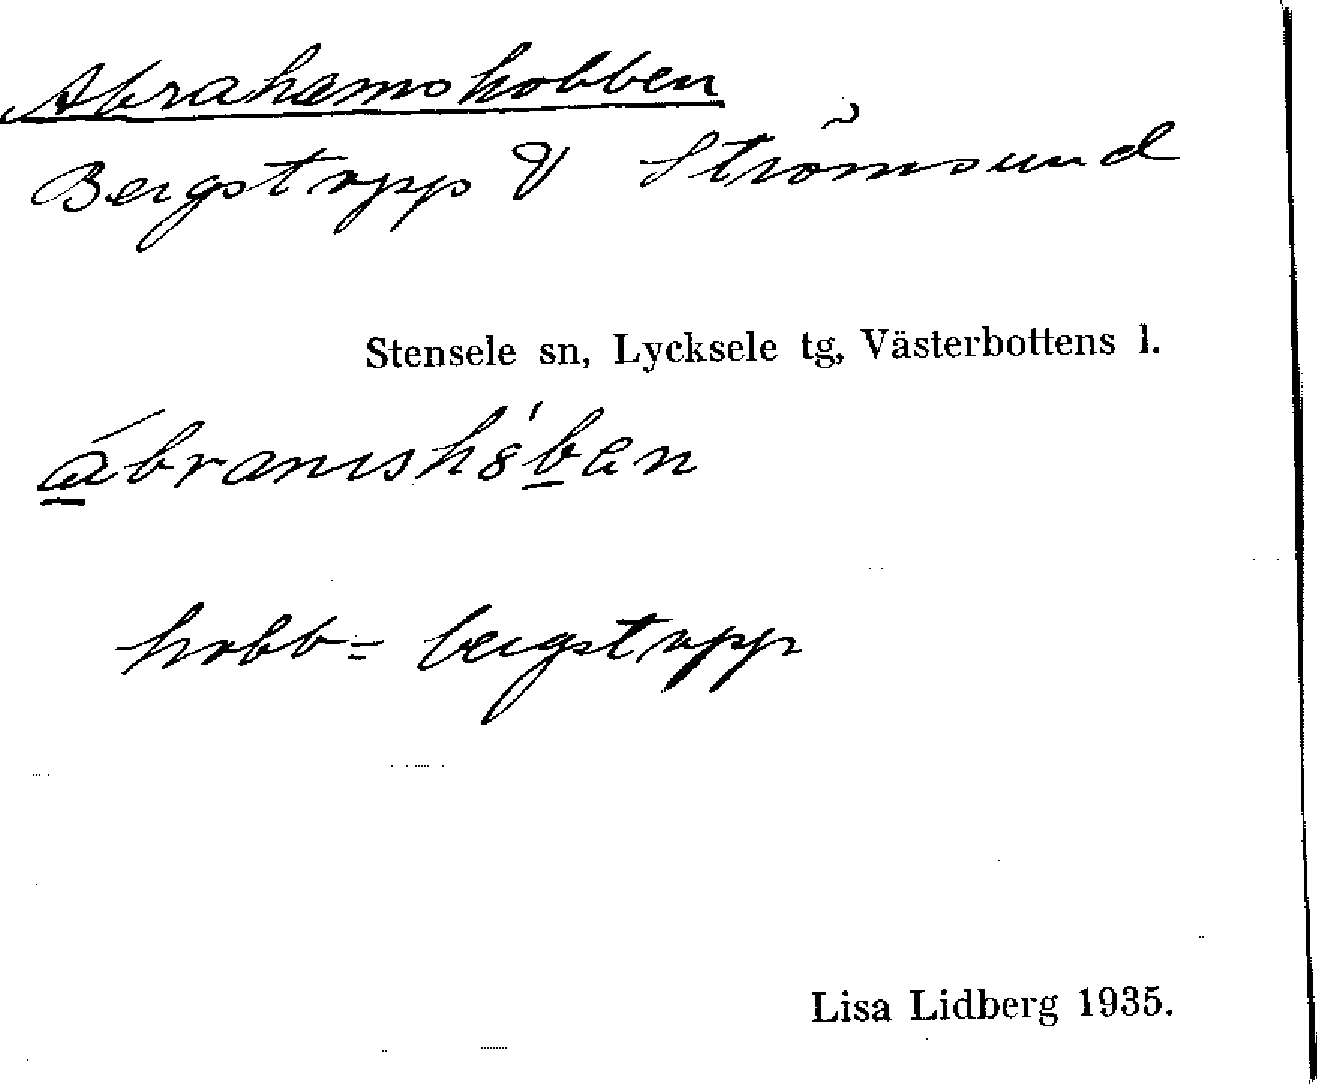 Abrahamshobben
Bergstopp V Strömsund
Stensele sn, Lycksele tg, Västerbottens l.
hobb = bergstopp
Lisa Lidberg 1935.